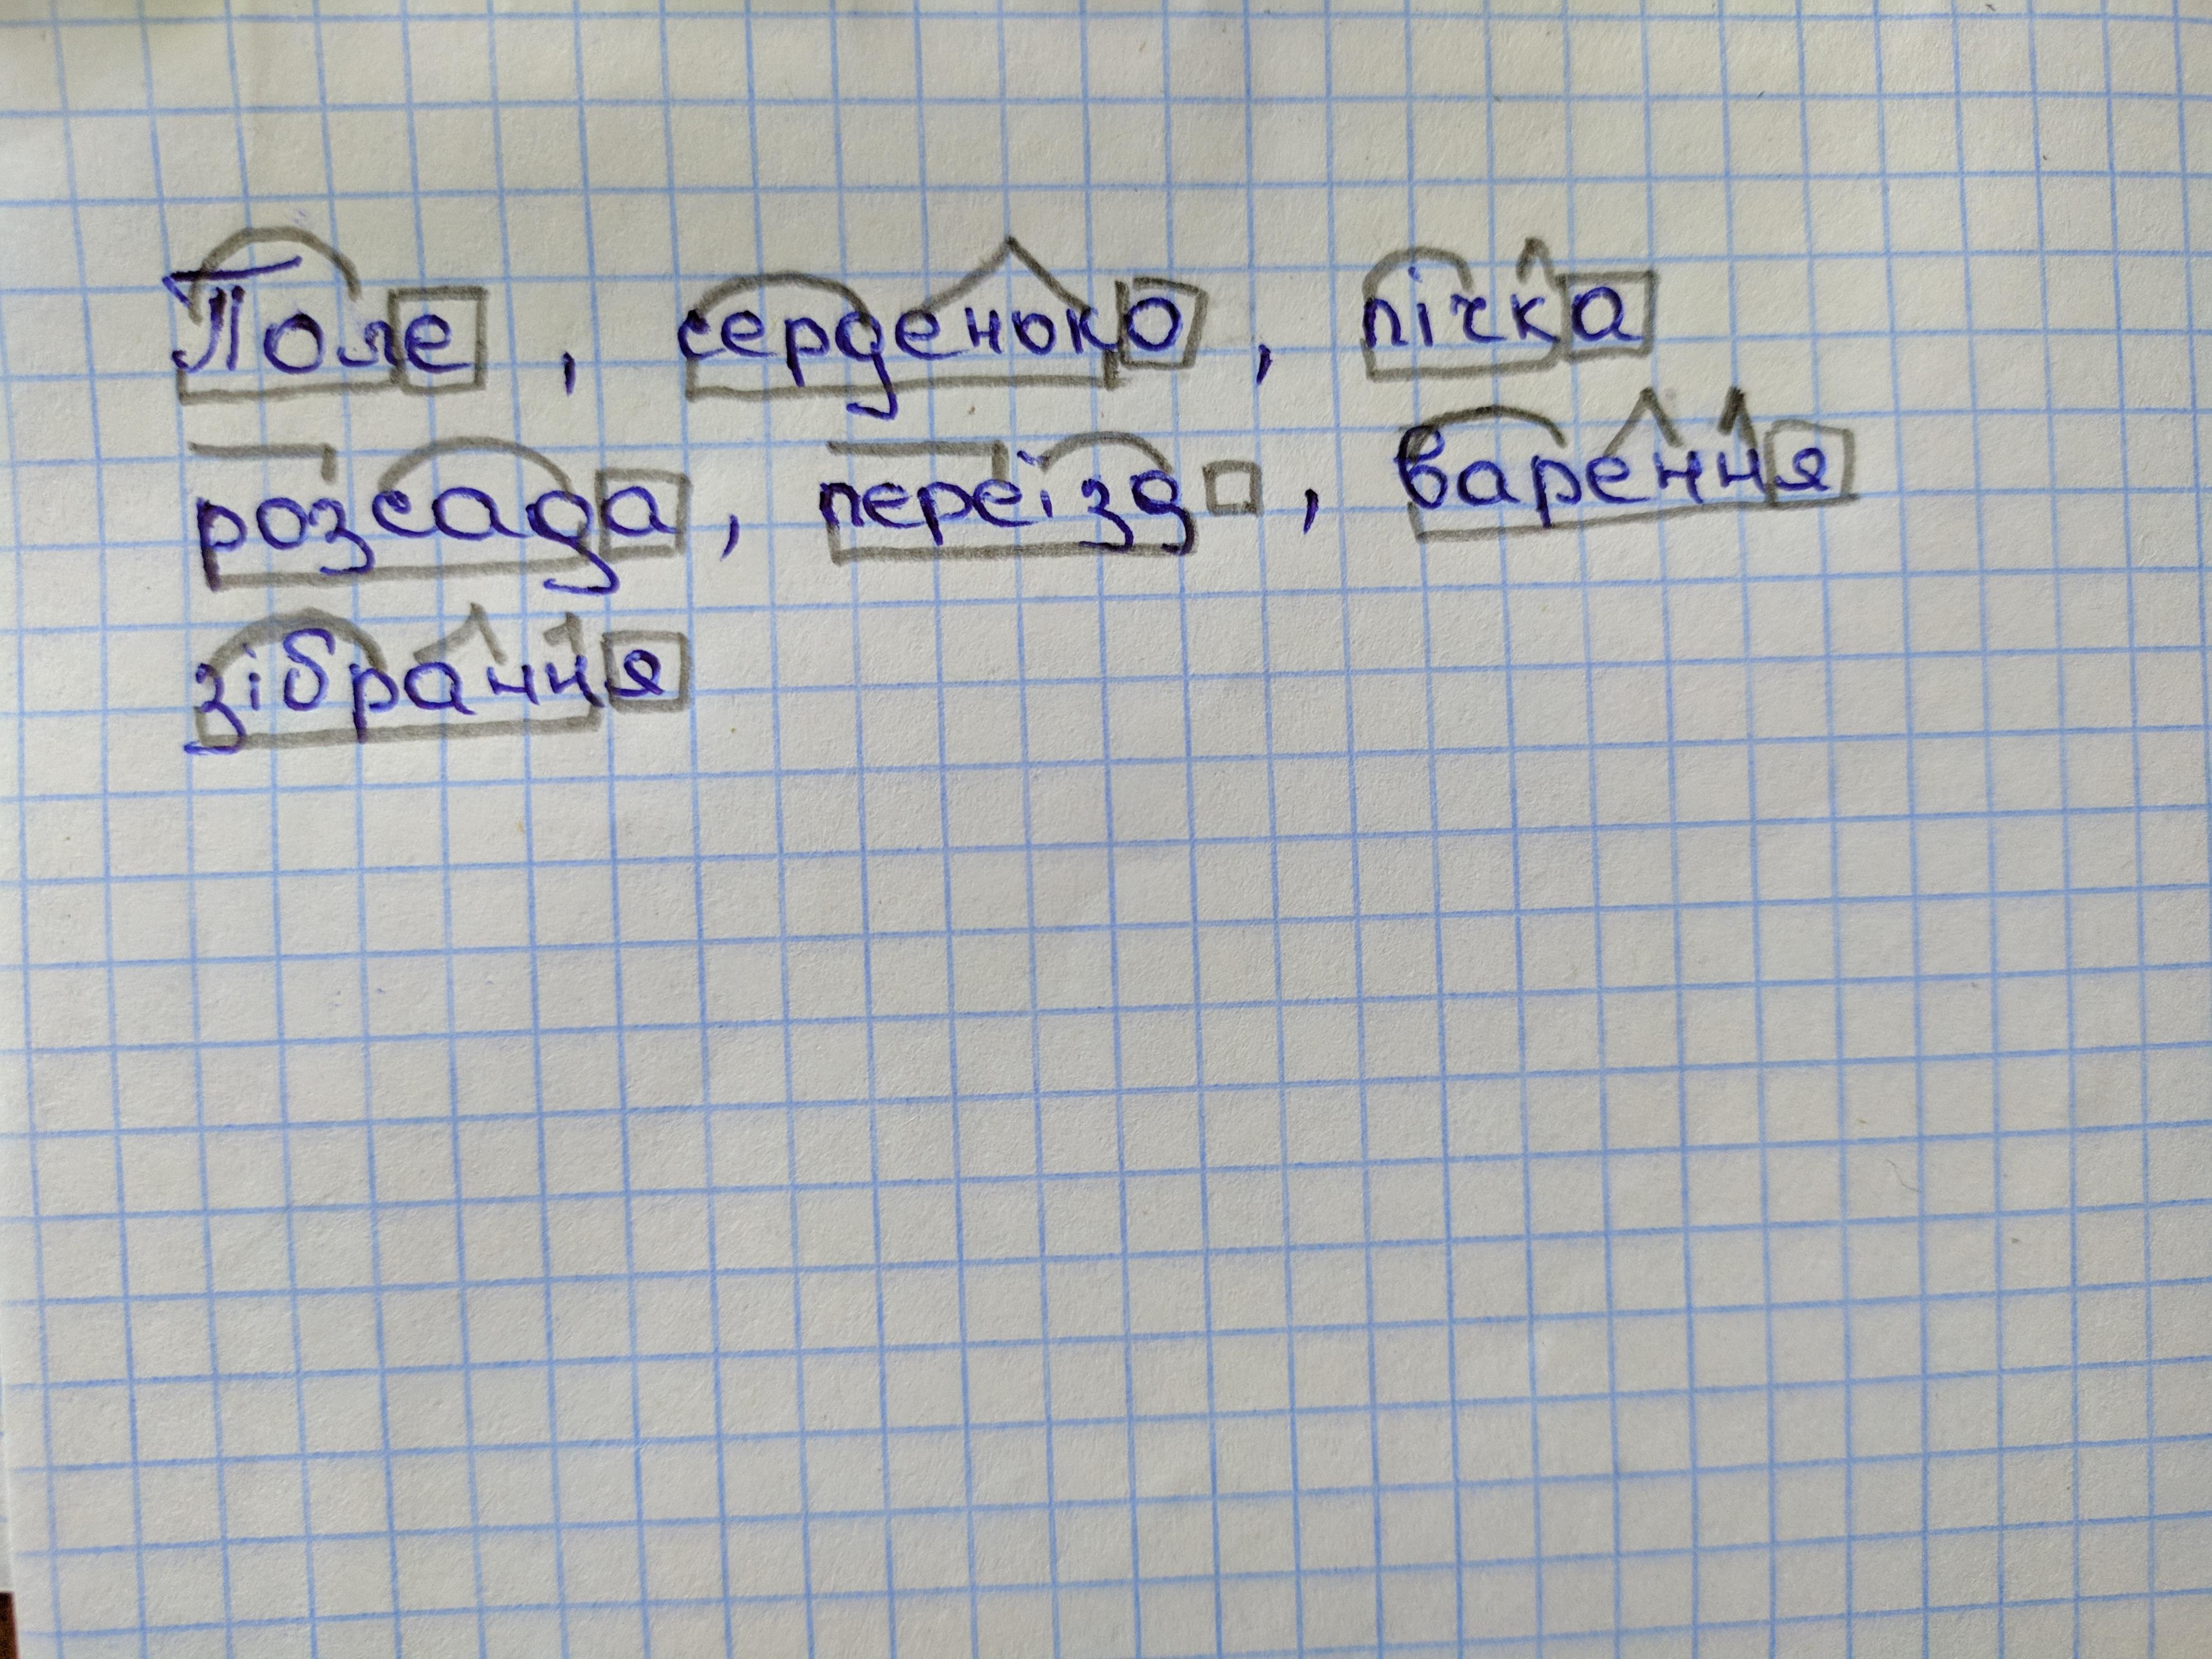 Поле, серденько, пічка
розсада, переїзд, варення
зібрання